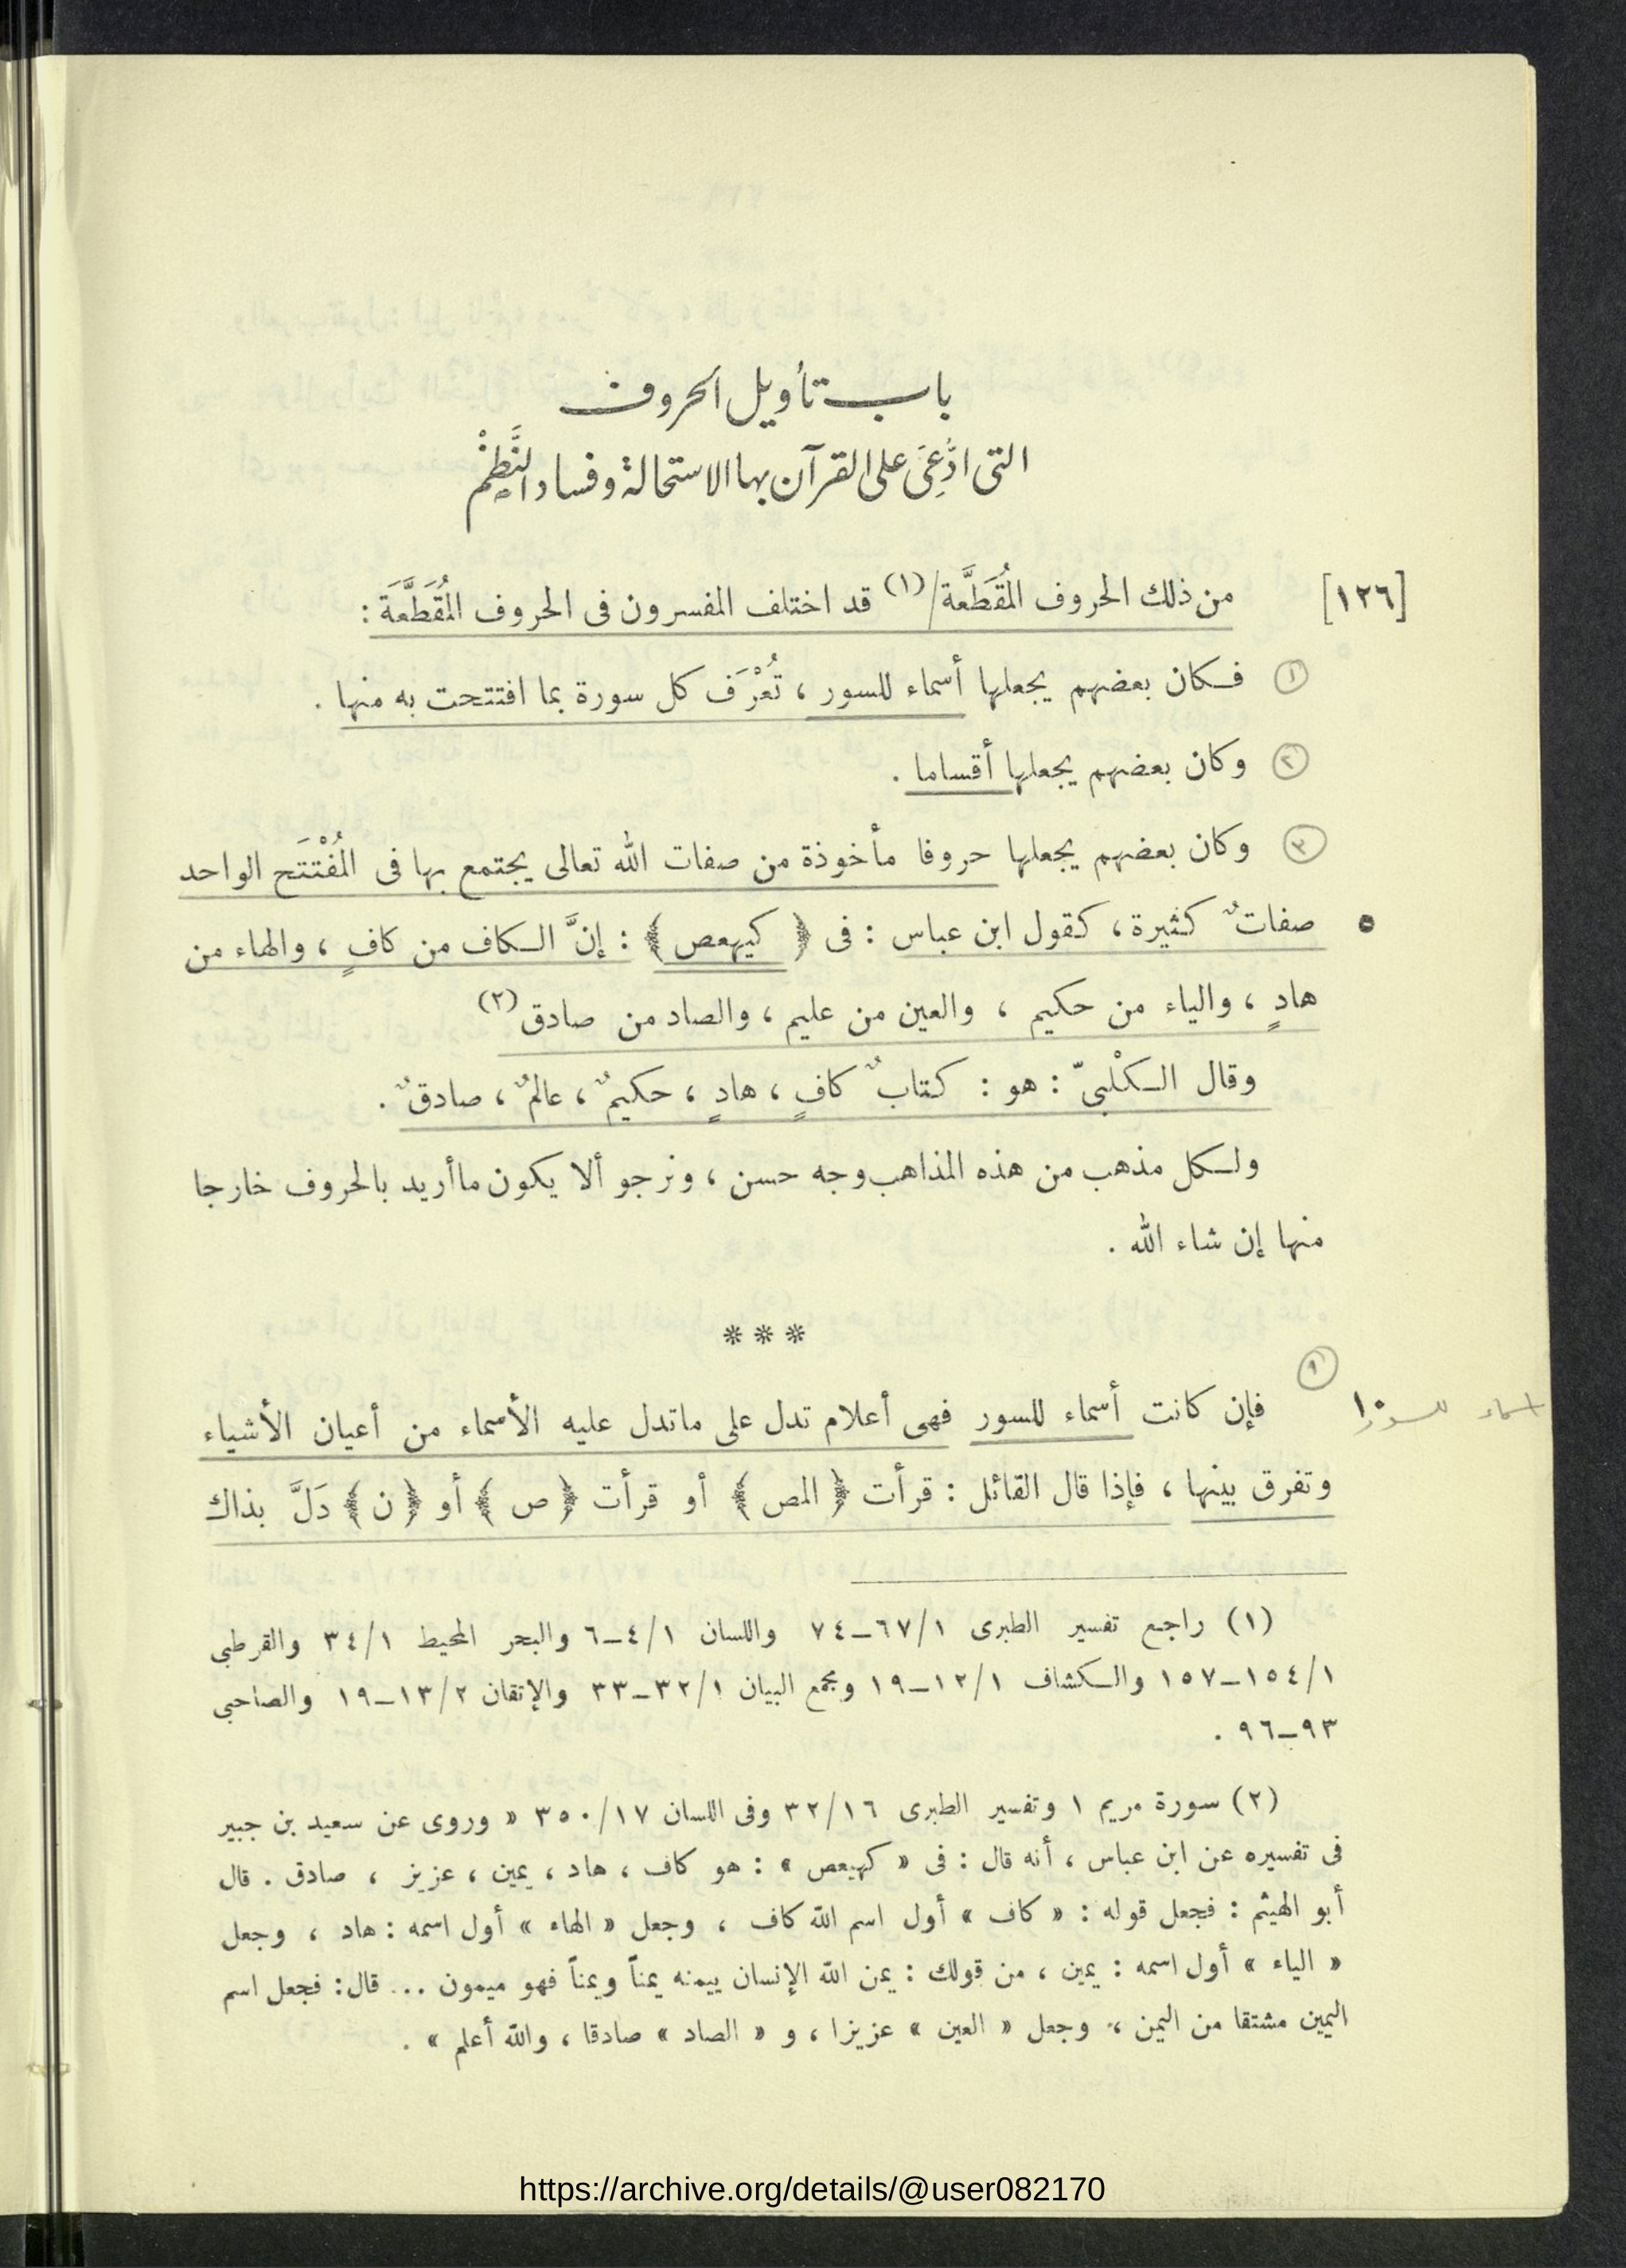 باب تأويل الحروف
التى ادُّعِىَ على القرآن بها الاستحالة وفساد النَّظْمِ
[١٢٦] من ذلك الحروف المُقَطَّعة/(١) قد اختلف المفسرون فى الحروف المُقَطَّعَة :
① فكان بعضهم يجعلها أسماء للسور ، تُعْرَف كل سورة بما افتتحت به منها .
② وكان بعضهم يجعلها أقساما .
③ وكان بعضهم يجعلها حروفا مأخوذة من صفات الله تعالى يجتمع بها فى المُفْتَتَح الواحد
٥ صفاتٌ كثيرة ، كقول ابن عباس : فى ﴿ كهيعص ﴾ : إنَّ الكاف من كافٍ ، والهاء من
هادٍ ، والياء من حكيم ، والعين من عليم ، والصاد من صادق(٢)
وقال الكلْبىّ : هو : كتابٌ كافٍ ، هادٍ ، حكيمٌ ، عالمٌ ، صادقٌ .
ولكل مذهب من هذه المذاهب وجه حسن ، ونرجو ألا يكون ما أريد بالحروف خارجا
منها إن شاء الله .
***
①
اسماء للسور ١٠ فإن كانت أسماء للسور فهى أعلام تدل على ماتدل عليه الأسماء من أعيان الأشياء
وتفرق بينها ، فإذا قال القائل : قرأت ﴿ المص ﴾ أو قرأت ﴿ ص ﴾ أو ﴿ ن ﴾ دَلَّ بذاك
(١) راجع تفسير الطبرى ١/٦٧–٧٤ واللسان ١/٤–٦ والبحر المحيط ١/٣٤ والقرطبى
١/١٥٤–١٥٧ والكشاف ١/١٢–١٩ ومجمع البيان ١/٣٢–٣٣ والإتقان ٢/١٣–١٩ والصاحبى
٩٣–٩٦ .
(٢) سورة مريم ١ وتفسير الطبرى ١٦/٣٢ وفى اللسان ١٧/٣٥٠ « وروى عن سعيد بن جبير
فى تفسيره عن ابن عباس ، أنه قال : فى « كهيعص » : هو كاف ، هاد ، يمين ، عزيز ، صادق . قال
أبو الهيثم : فجعل قوله : « كاف » أول اسم الله كاف ، وجعل « الهاء » أول اسمه : هاد ، وجعل
« الياء » أول اسمه : يمين ، من قولك : يمن الله الإنسان ييمنه يمناً ويمناً فهو ميمون ... قال : فجعل اسم
اليمين مشتقا من اليمن ، وجعل « العين » عزيزا ، و « الصاد » صادقا ، والله أعلم » .
https://archive.org/details/@user082170